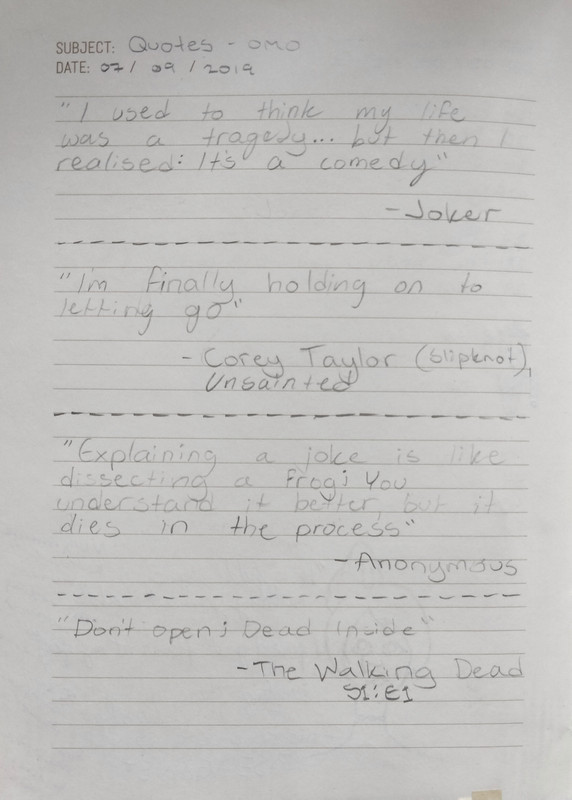 SUBJECT: Quotes - OMO
DATE: 07 / 09 / 2019
"I used to think my life
was a tragedy... but then I
realised: It's a comedy"
- Joker
"I'm finally holding on to
letting go"
- Corey Taylor (Slipknot),
Unsainted
"Explaining a joke is like
dissecting a frog; You
understand it better, but it
dies in the process"
- Anonymous
"Don't open; Dead Inside"
- The Walking Dead
S1:E1